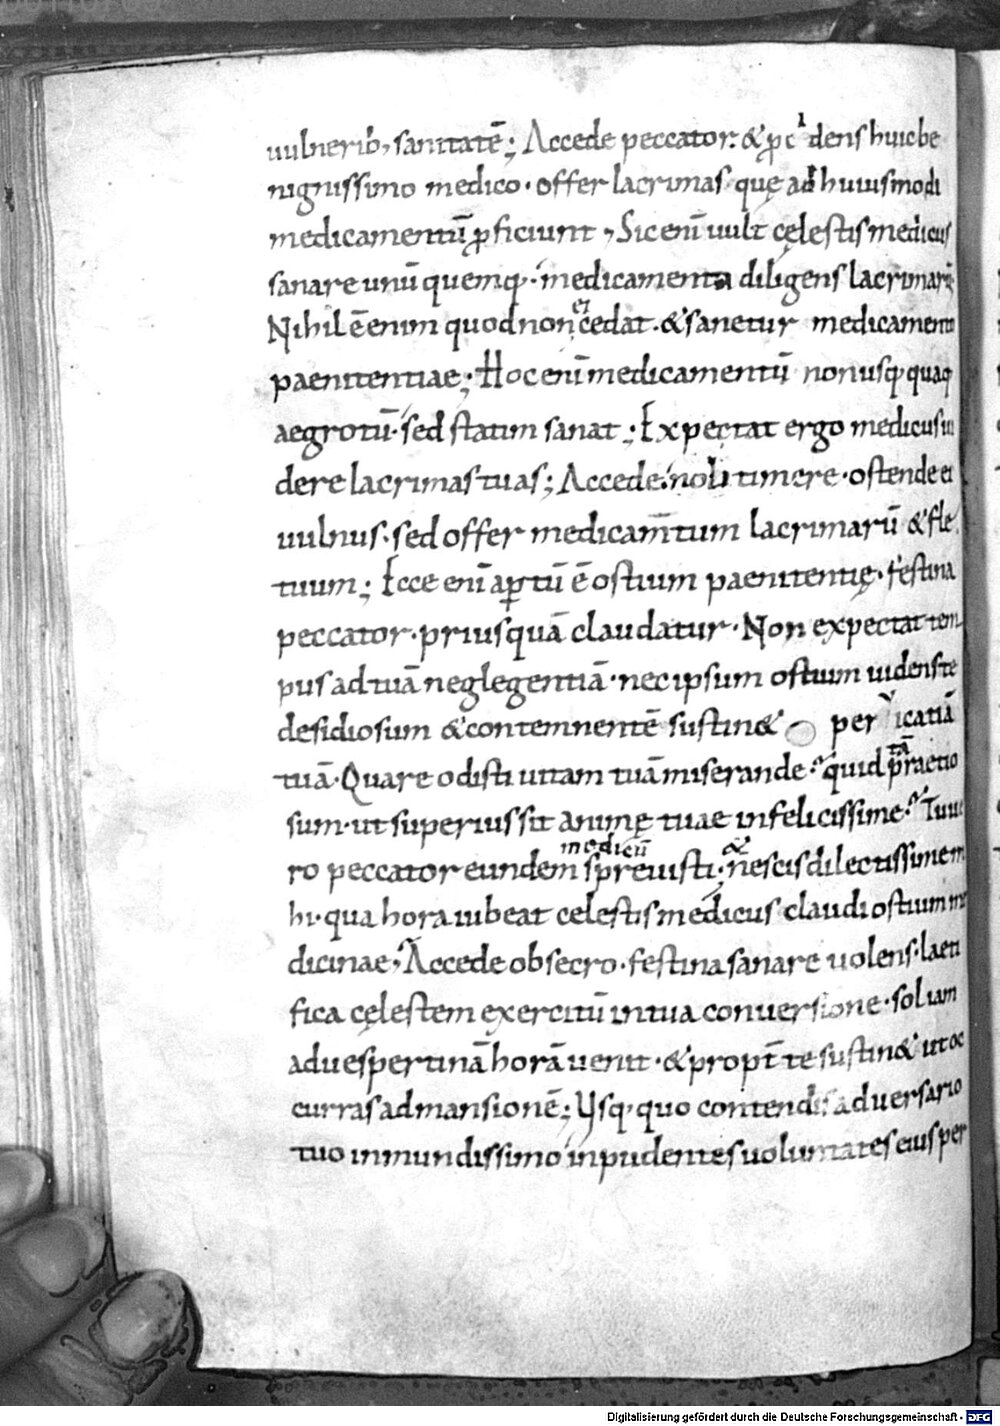 uulnerib; sanitatē; Accede peccator. & ꝓcidens huic be
nignissimo medico · offer lacrimas quę ad huiusmodi
medicamentū ꝓficiunt, Sic enī uult cęlestis medicus
sanare unū quemq; · medicamenta diligens lacrimarū
Nihil ē enim quod non cedat ei · & sanetur medicamento
paenitentiae; Hoc enī medicamentū non usq; quaq;
aegrotū · sed statim sanat; Expectat ergo medicus ui
dere lacrimas tuas; Accede · noli timere · ostende ei
uulnus · sed offer medicam̄tum lacrimarū & fle
tuum; Ecce enī aꝑtū ē ostium paenitentię · festina
peccator · prius quā claudatur · Non expectat tem
pus ad tuā neglegentiā · nec ipsum ostium uidens te
desidiosum & contemnentē sustin& peruicatiā
tuā · Quare odisti uitam tuā miserande · quid tā praetio
sum · ut superius sit animę tuae infelicissime · Tu ue
ro peccator eundem medicū spreuisti; & nescis dilectissime m
hi · qua hora iubeat celestis medicus claudi ostium me
dicinae, Accede obsecro · festina sanare uolens · laeti
fica cęlestem exercitū in tua conuersione · sol iam
ad uespertinā horā uenit · & propt̄ te sustin& ut oc
curras ad mansionē; Usq; quo contendis aduersario
tuo inmundissimo inpudentes uoluntates eius per